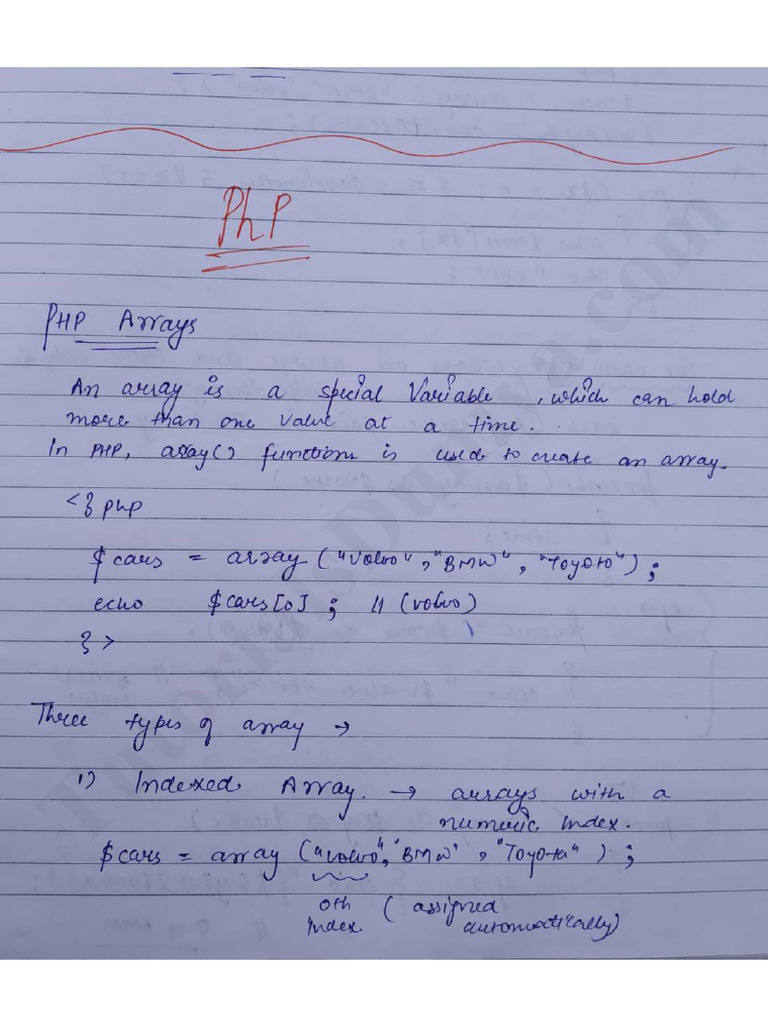 PhP
PHP Arrays
An array is a special Variable , which can hold
more than one value at a time.
In PHP, array() function is used to create an array.
<? php
$cars = array ("Volvo", "BMW", "Toyota");
echo $cars[0]; // (volvo)
?>
Three types of array →
1) Indexed Array. → arrays with a
numeric index.
$cars = array ("volvo", "BMW", "Toyota");
0th (assigned
index automatically)
TutorialsDuniya.com